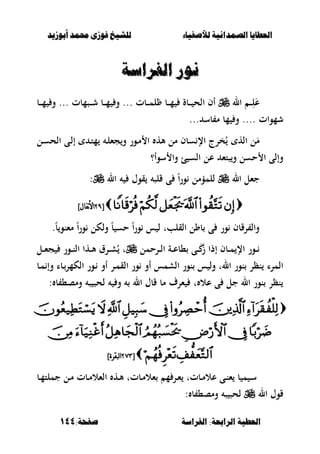 العطايا الصمدانية للأصفياء
للشيخ فوزى محمد أبوزيد
نور الفراسة
عَلِـم الله ﷻ لأن الحيـاة فيهـا ظلمـات ... وفيهـا شـبهات ... وفيهـا
شهوات .... وفيها مفاسد...
مَن الذى يُخرج الإنسان من هذه الأمـور ويجعلـه يهتـدى إلـى الحسـن
وإلى الأحسن ويبتعد عن السيئ والأسوأ؟
جعل الله ﷻ للمؤمن نوراً فى قلبه يقول فيه الله ﷻ:
﴿ إِن تَتَّقُوا۟ ٱللَّهَ يَجْعَل لَّكُمْ فُرْقَانًا ﴾ [٢٩الأنفال]
والفرقان نور فى باطن القلب، ليس نوراً حسياً ولكن نوراً معنوياً.
نـور الإيمـان إذا زكـى بطاعـة الـرحمن ﷻ، يُشـرق هـذا النـور فيجعـل
المرء ينظر بنور الله، وليس بنور الشمس أو نور القمـر أو نـور الكهربـاء وإنمـا
ينظر بنور الله جل فى علاه، فيعرف ما قال الله به وفيه لحبيبه ومصطفاه:
﴿ لِلْفُقَرَآءِ ٱلَّذِينَ أُحْصِرُوا۟ فِى سَبِيلِ ٱللَّهِ لَا يَسْتَطِيعُونَ
ضَرْبًا فِى ٱلْأَرْضِ يَحْسَبُهُمُ ٱلْجَاهِلُ أَغْنِيَآءَ مِنَ
ٱلتَّعَفُّفِ تَعْرِفُهُم ﴾ [٢٧٣البقرة]
سيميا يعنـى علامـات، يعـرفهم بعلامـات، هـذه العلامـات مـن جملتهـا
قول الله ﷻ لحبيبه ومصطفاه:
العطية الرابعة: الفراسة
صفحة:١٤٤